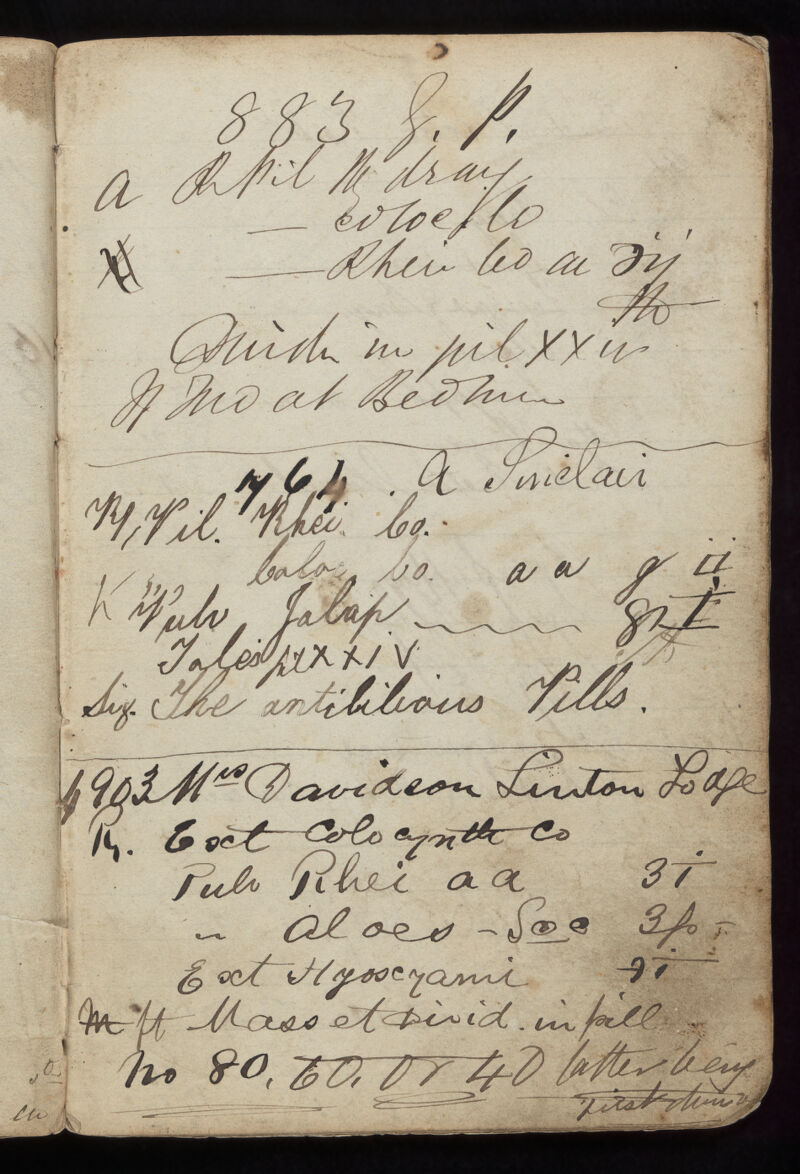 883 J. P.
A R Pil Hydrarg
— Coloc Co
— Rhei Co aa ʒij
M
Divide in pil xxiv
at Bedtime
764 A Sinclair
R, Pil. Rhei. Co.
K " Coloc co. aa g ii
Pulv Jalap gr i
Tales pil xxiv
Sig. The antibilious Pills.
903 Mrs Davidson Linton Lodge
R. Ext Colocynth Co
Pulv Rhei aa ʒi
" Aloes - Soc ʒfs -
Ext Hyoscyami ℈i
M ft Mass et Divid. in pill
No 80, 60, or 40 latter being